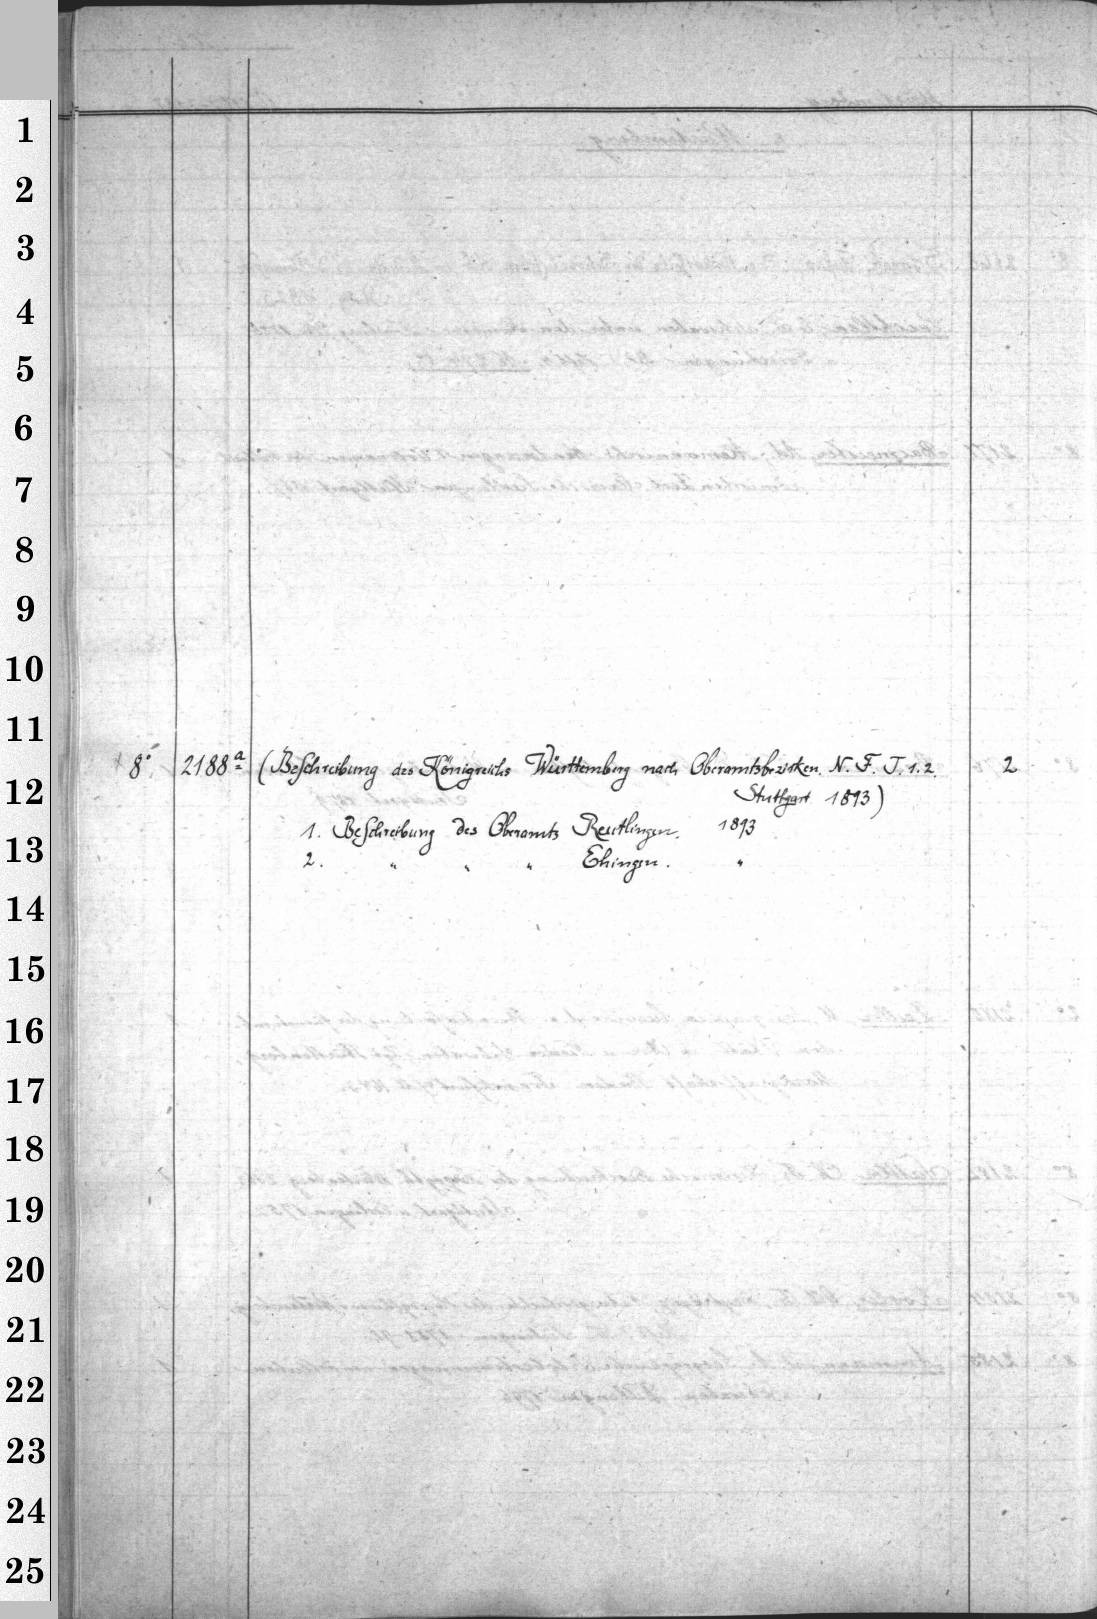 1
2
3
4
5
6
7
8
9
10
11
8° 2188a (Beschreibung des Königreichs Württemberg nach Oberamtsbezirken. N. F. I. 1. 2. 2
12
Stuttgart 1893)
1. Beschreibung des Oberamts Reutlingen. 1893
13
2. " " " Ehingen. "
14
15
16
17
18
19
20
21
22
23
24
25